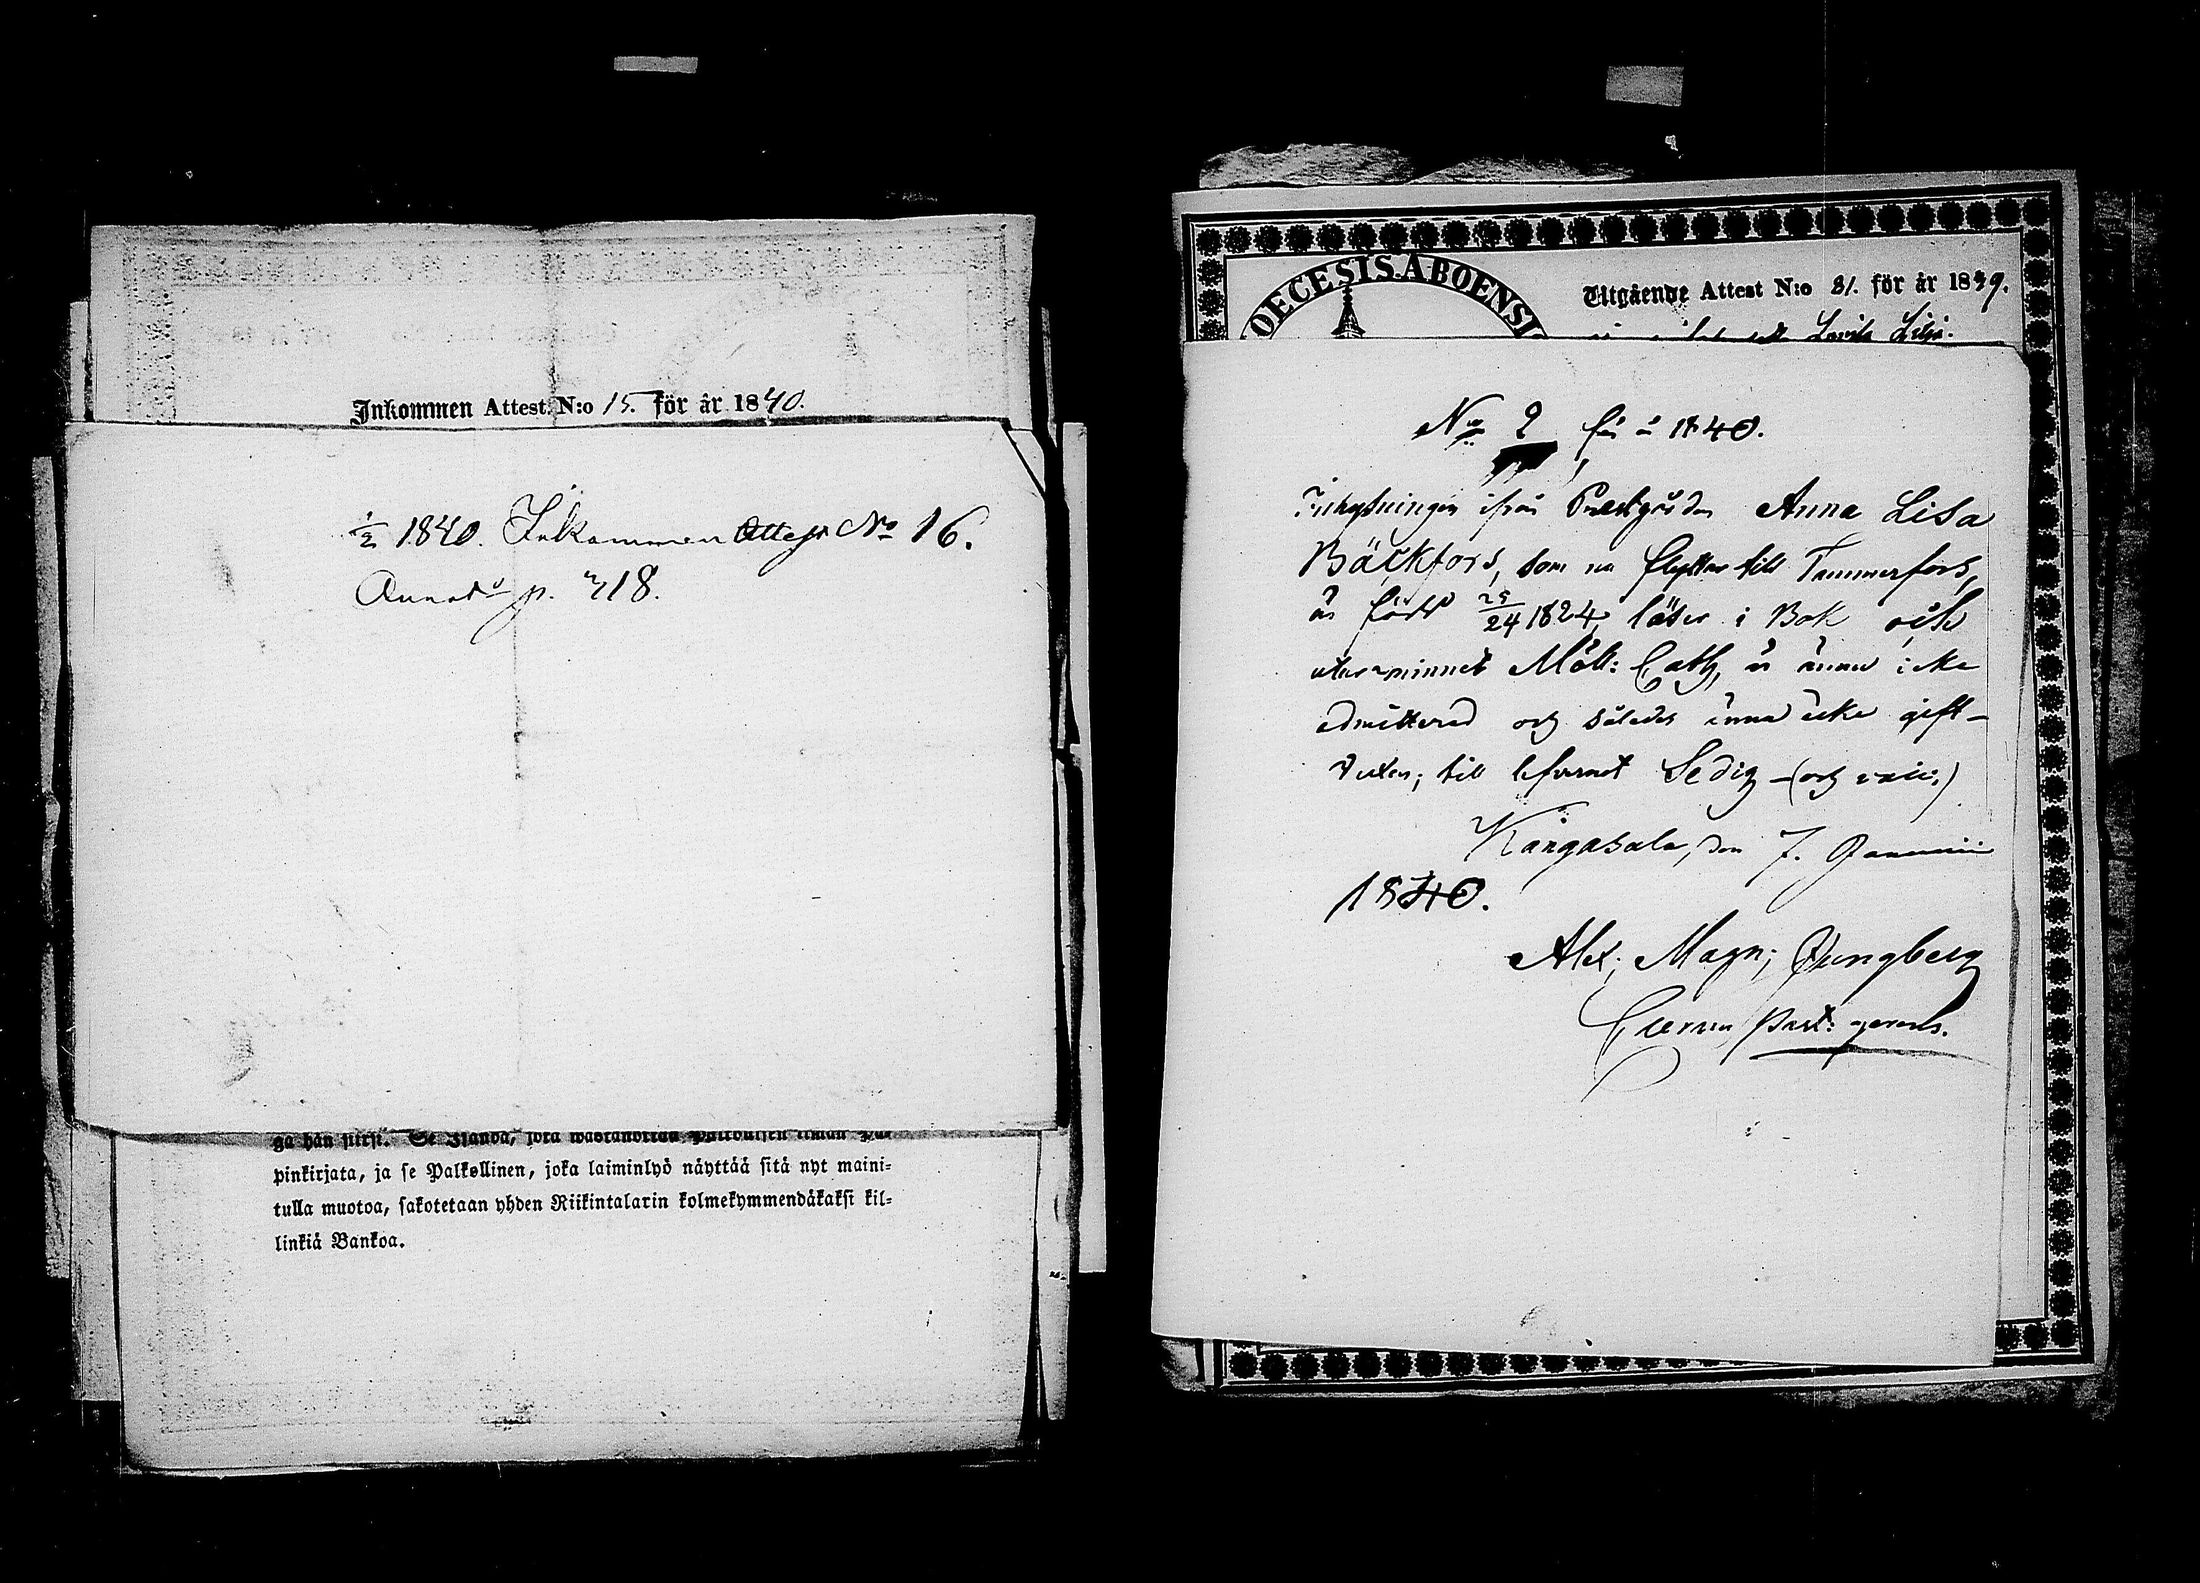 Inkommen Attest. N:o 15. för år 1840.
1/2 1840. Inkommen Attest No 16.
p. 418.
pinkirjata, ja se Palkollinen, joka laiminlyö näyttää sitä nyt maini-
tulla muotoa, sakotetaan yhden Riikintalarin kolmekymmendäkaksi kil-
linkiä Bankoa.
OECESIS. ABOENSI
Utgående Attest N:o 31. för år 1839.
No 2 för å 1840.
Inhysningen ifrån Prestgården Anna Lisa
Bäckfors, som nu flyttar till Tammerfors,
är född 1824, läser i Bok och
utur minnet Cath, är ännu icke
admitterad och således ännu icke gift-
vuxen; till lefvernet Sedig - (och vacc.)
Kangasala, den 7. Januarii
1840.
Alex; Magn; Ljungberg
past: